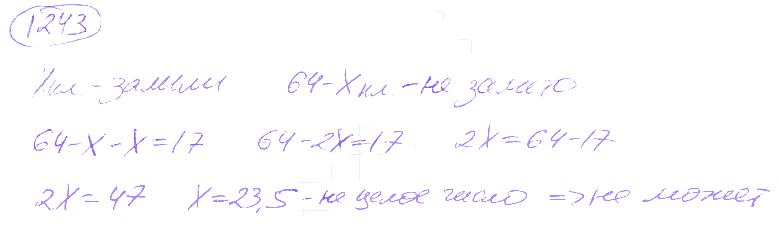 1243
X кл. - залили 64-X кл. - не залито
64-X-X=17 64-2X=17 2X=64-17
2X=47 X=23,5 - не целое число => не может